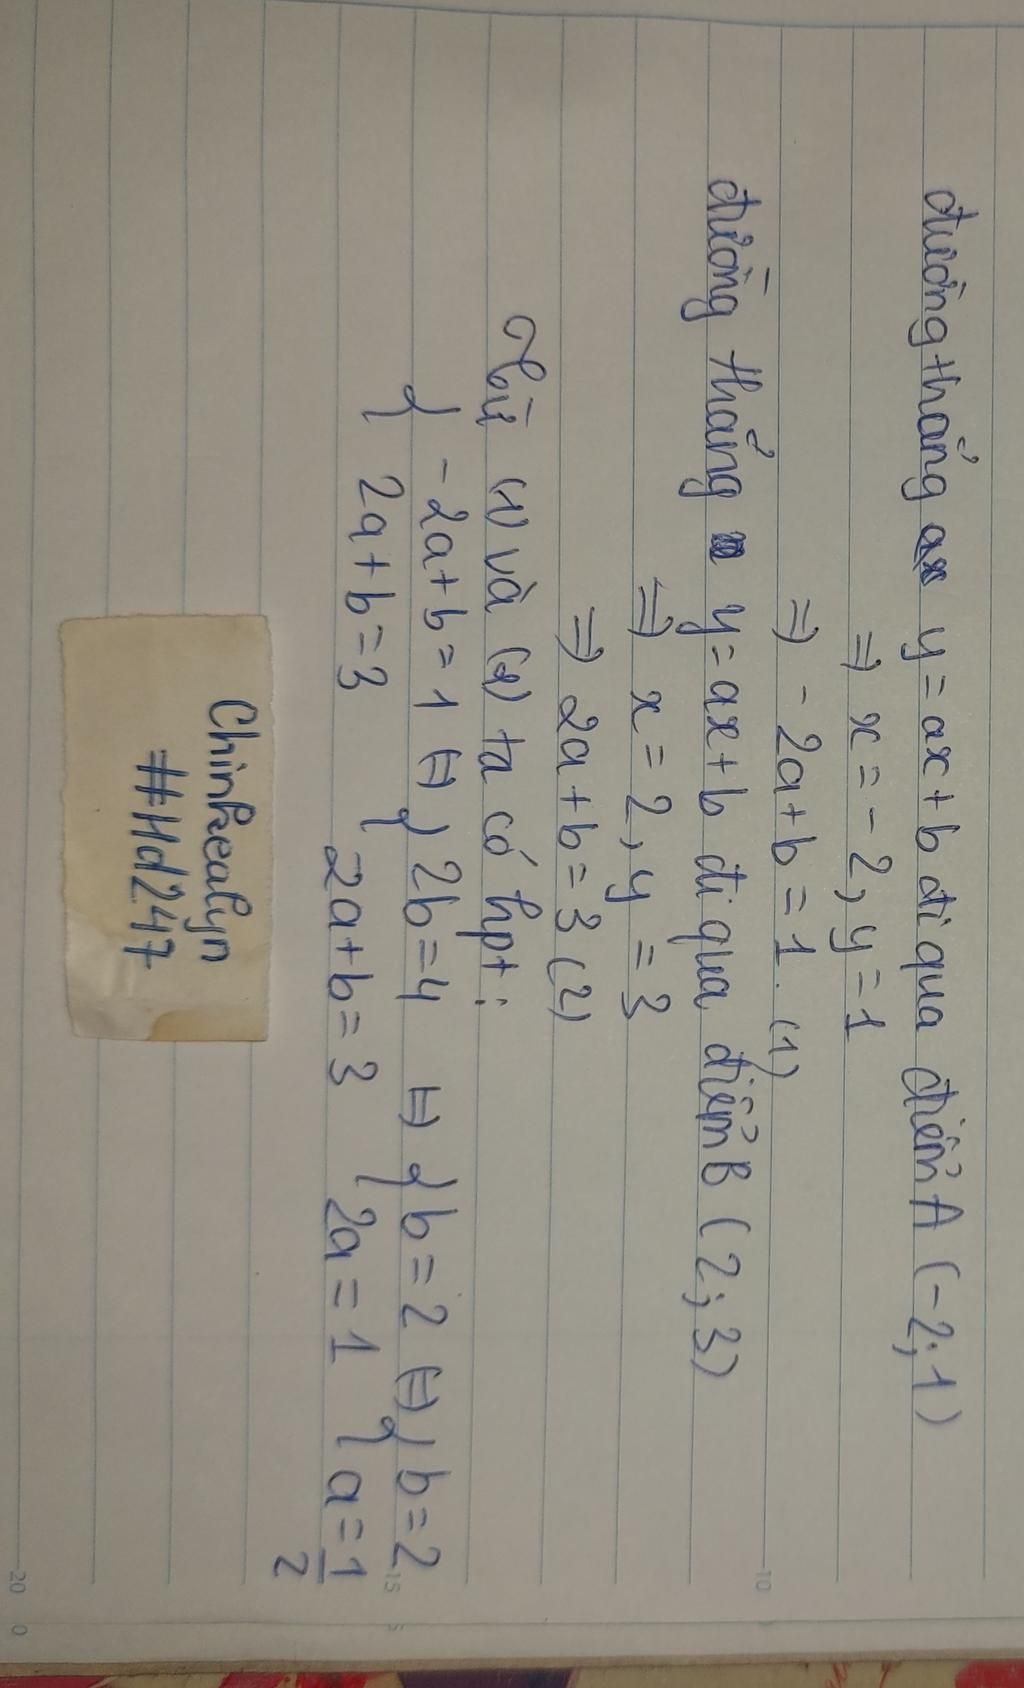 đường thẳng y = ax + b đi qua điểm A (-2; 1)
=> x = -2, y = 1
=> -2a + b = 1. (1)
đường thẳng y = ax + b đi qua điểm B (2; 3)
=> x = 2, y = 3
=> 2a + b = 3 (2)
Từ (1) và (2) ta có hpt:
{ -2a + b = 1 <=> { 2b = 4 <=> { b = 2 <=> { b = 2
{ 2a + b = 3 2a + b = 3 { 2a = 1 { a = 1/2
Chinkealyn
#Hd247
-10
-15
5
-20
0